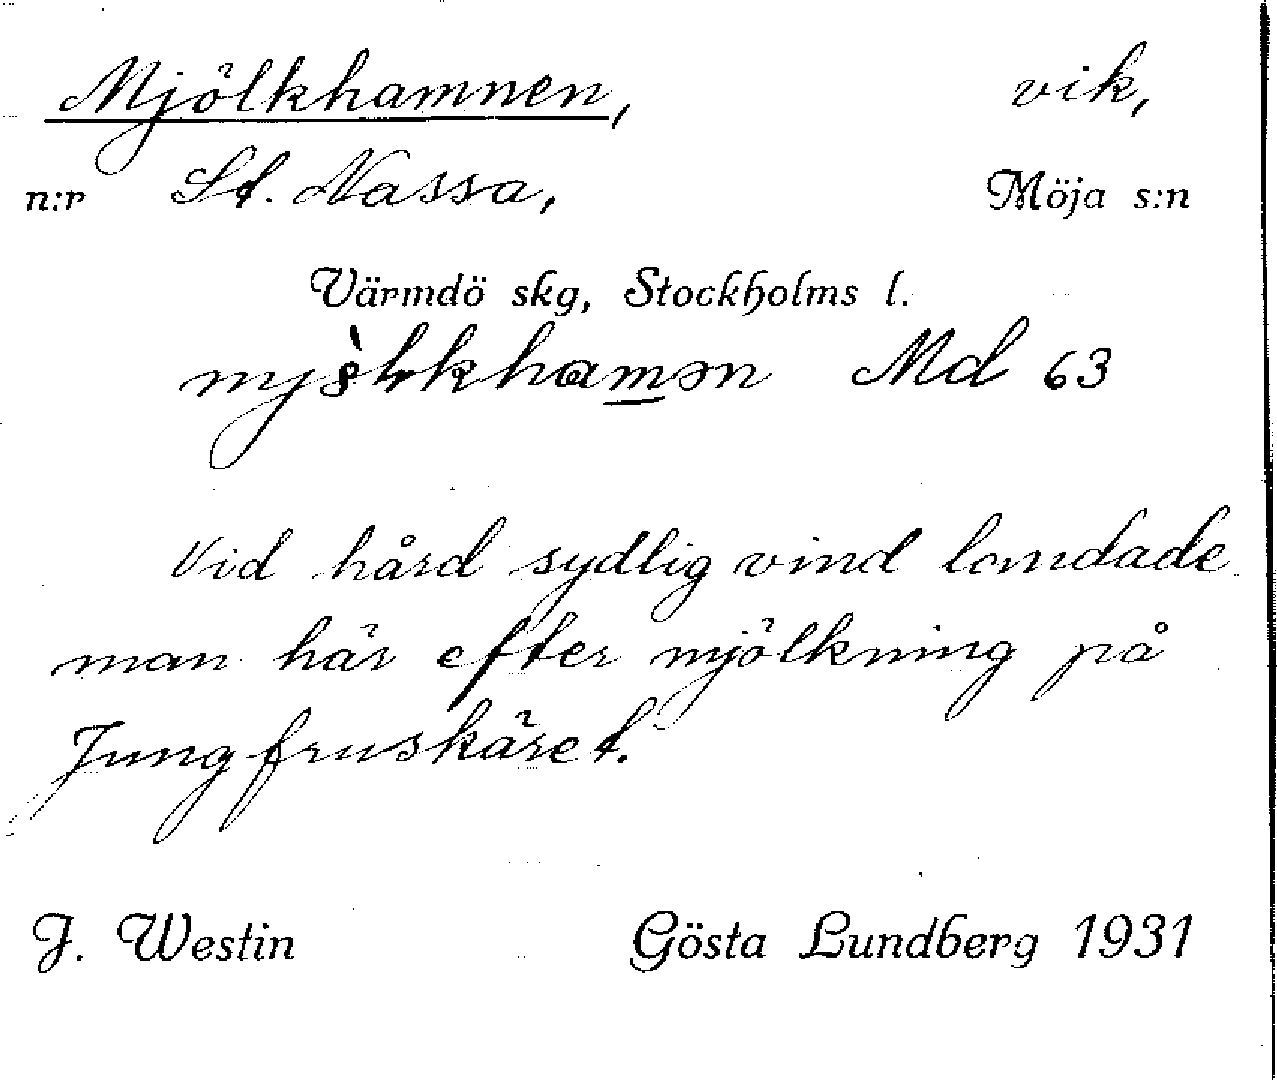 Mjölkhamnen, vik,
n:r St. Nassa, Möja s:n
Värmdö skg, Stockholms l.
Md 63
Vid hård sydlig vind landade
man här efter mjölkning på
Jungfruskäret.
J. Westin Gösta Lundberg 1931